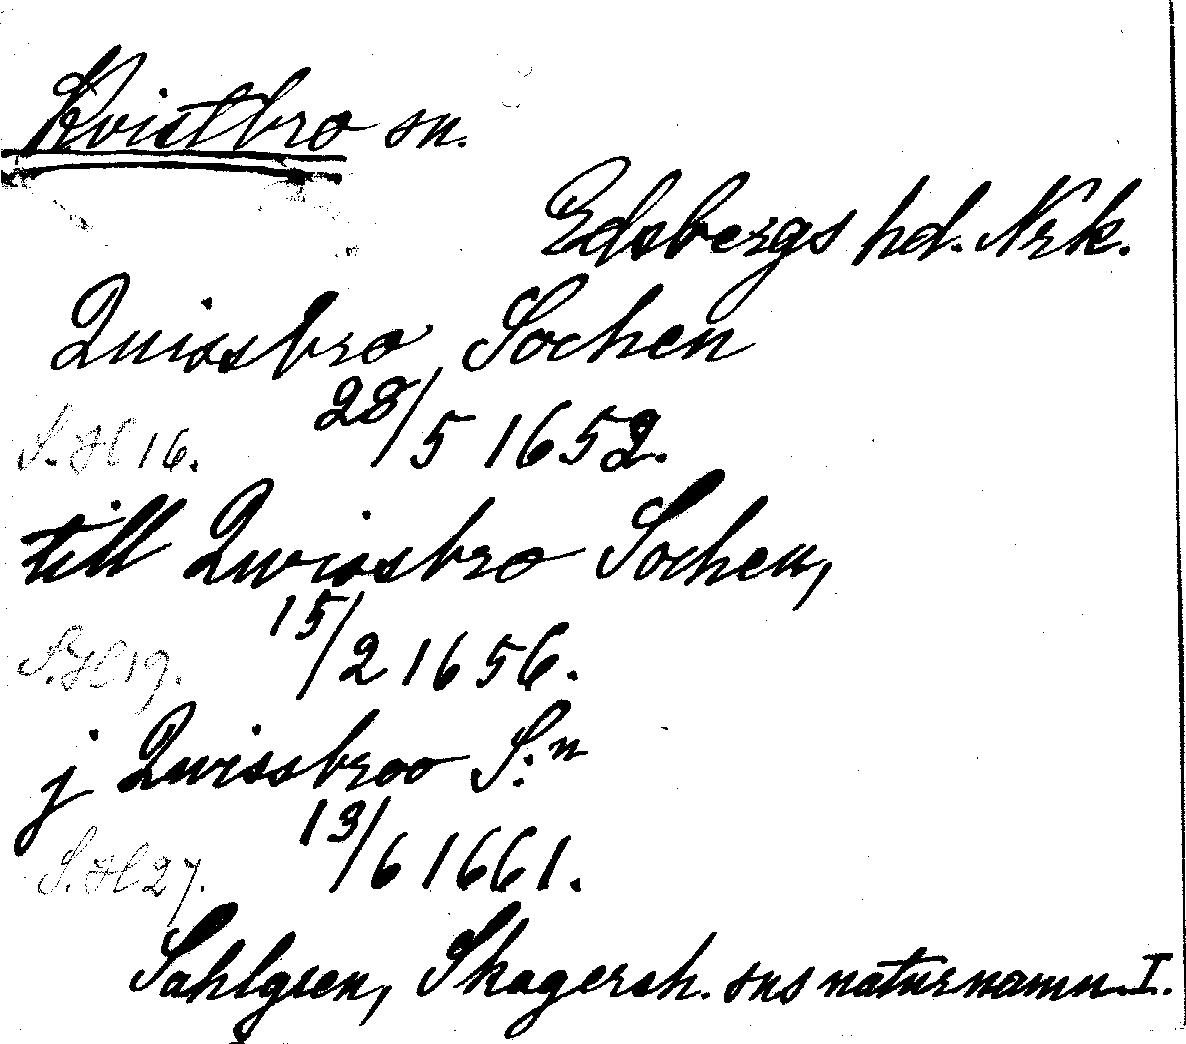 Kvistbro sn.
Edsbergs hd. Nrk.
Quissbro Sochen
S.H 16. 28/5 1652.
till Qwissbro Sochen,
S.H 19. 15/2 1656.
j Qwissbroo S:n
S.H 27. 13/6 1661.
Sahlgren, Skagersh. sns naturnamn. I.